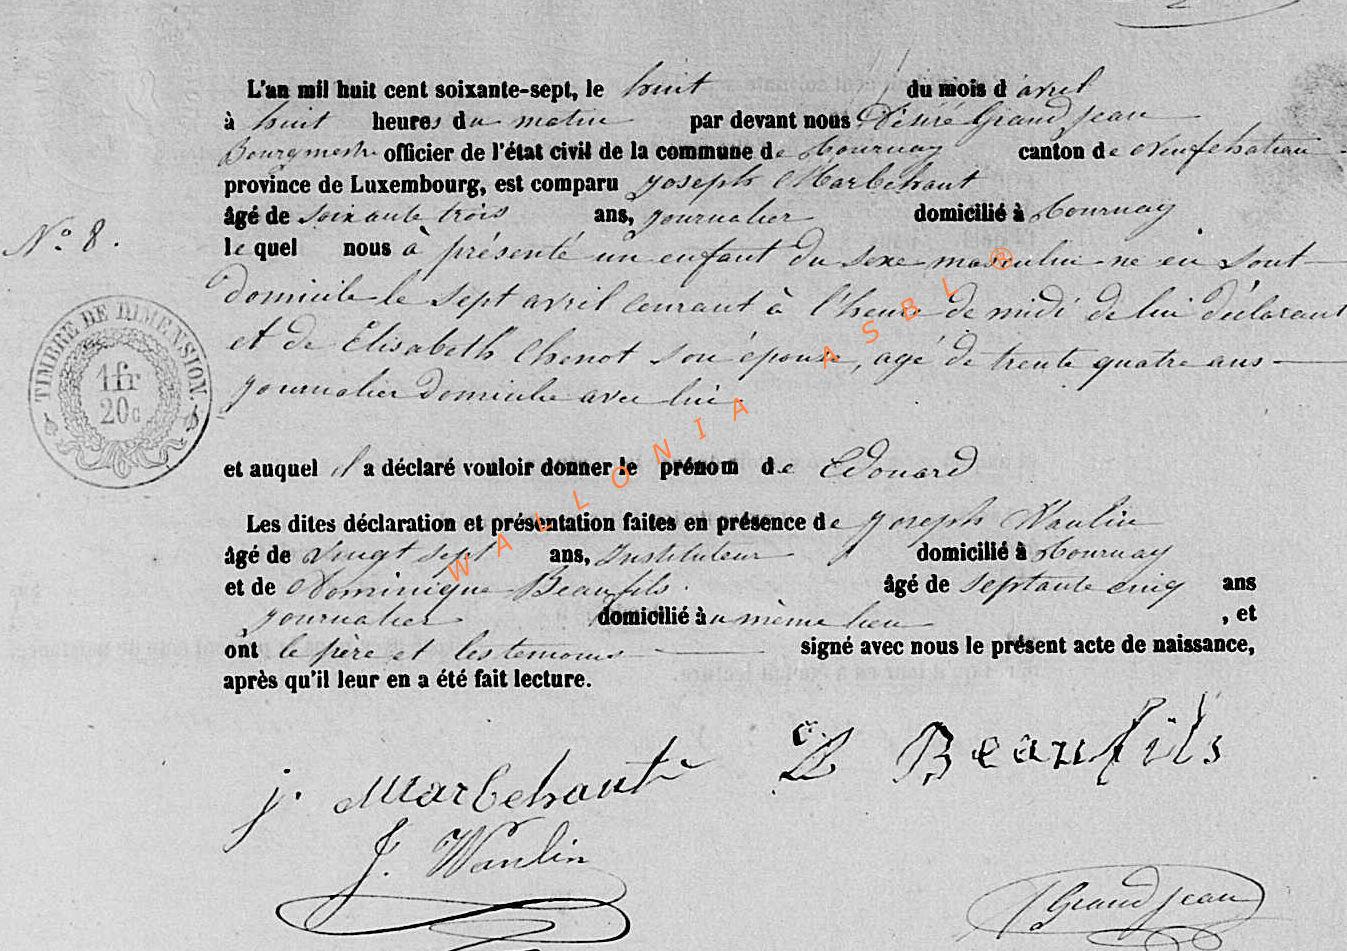 L'an mil huit cent soixante-sept, le huit du mois d'avril
à huit heures du matin par devant nous Désiré Grandjean
Bourgmestre officier de l'état civil de la commune de Tournay canton de Neufchateau
province de Luxembourg, est comparu Joseph Marbehant
âgé de soixante trois ans, journalier domicilié à Tournay
N.° 8.
le quel nous à présenté un enfant du sexe masculin né en sont
domicile le sept avril courant à l'heure de midi de lui déclarant
et de Elisabeth Chenot son épouse, agé de trente quatre ans
journalier domicilie avec lui.
TIMBRE DE DIMENSION.
1fr
20c
et auquel il a déclaré vouloir donner le prénom de Edouard
Les dites déclaration et présentation faites en présence de Joseph Waulin
âgé de vingt sept ans, Instituteur domicilié à Tournay
et de Dominique Beaufils. âgé de septante cinq ans
journalier domicilié au même lieu , et
ont le père et les temoins signé avec nous le présent acte de naissance,
après qu'il leur en a été fait lecture.
WALLONIA ASBL ®
j. Marbehant Beaufils
J. Waulin
Grandjean